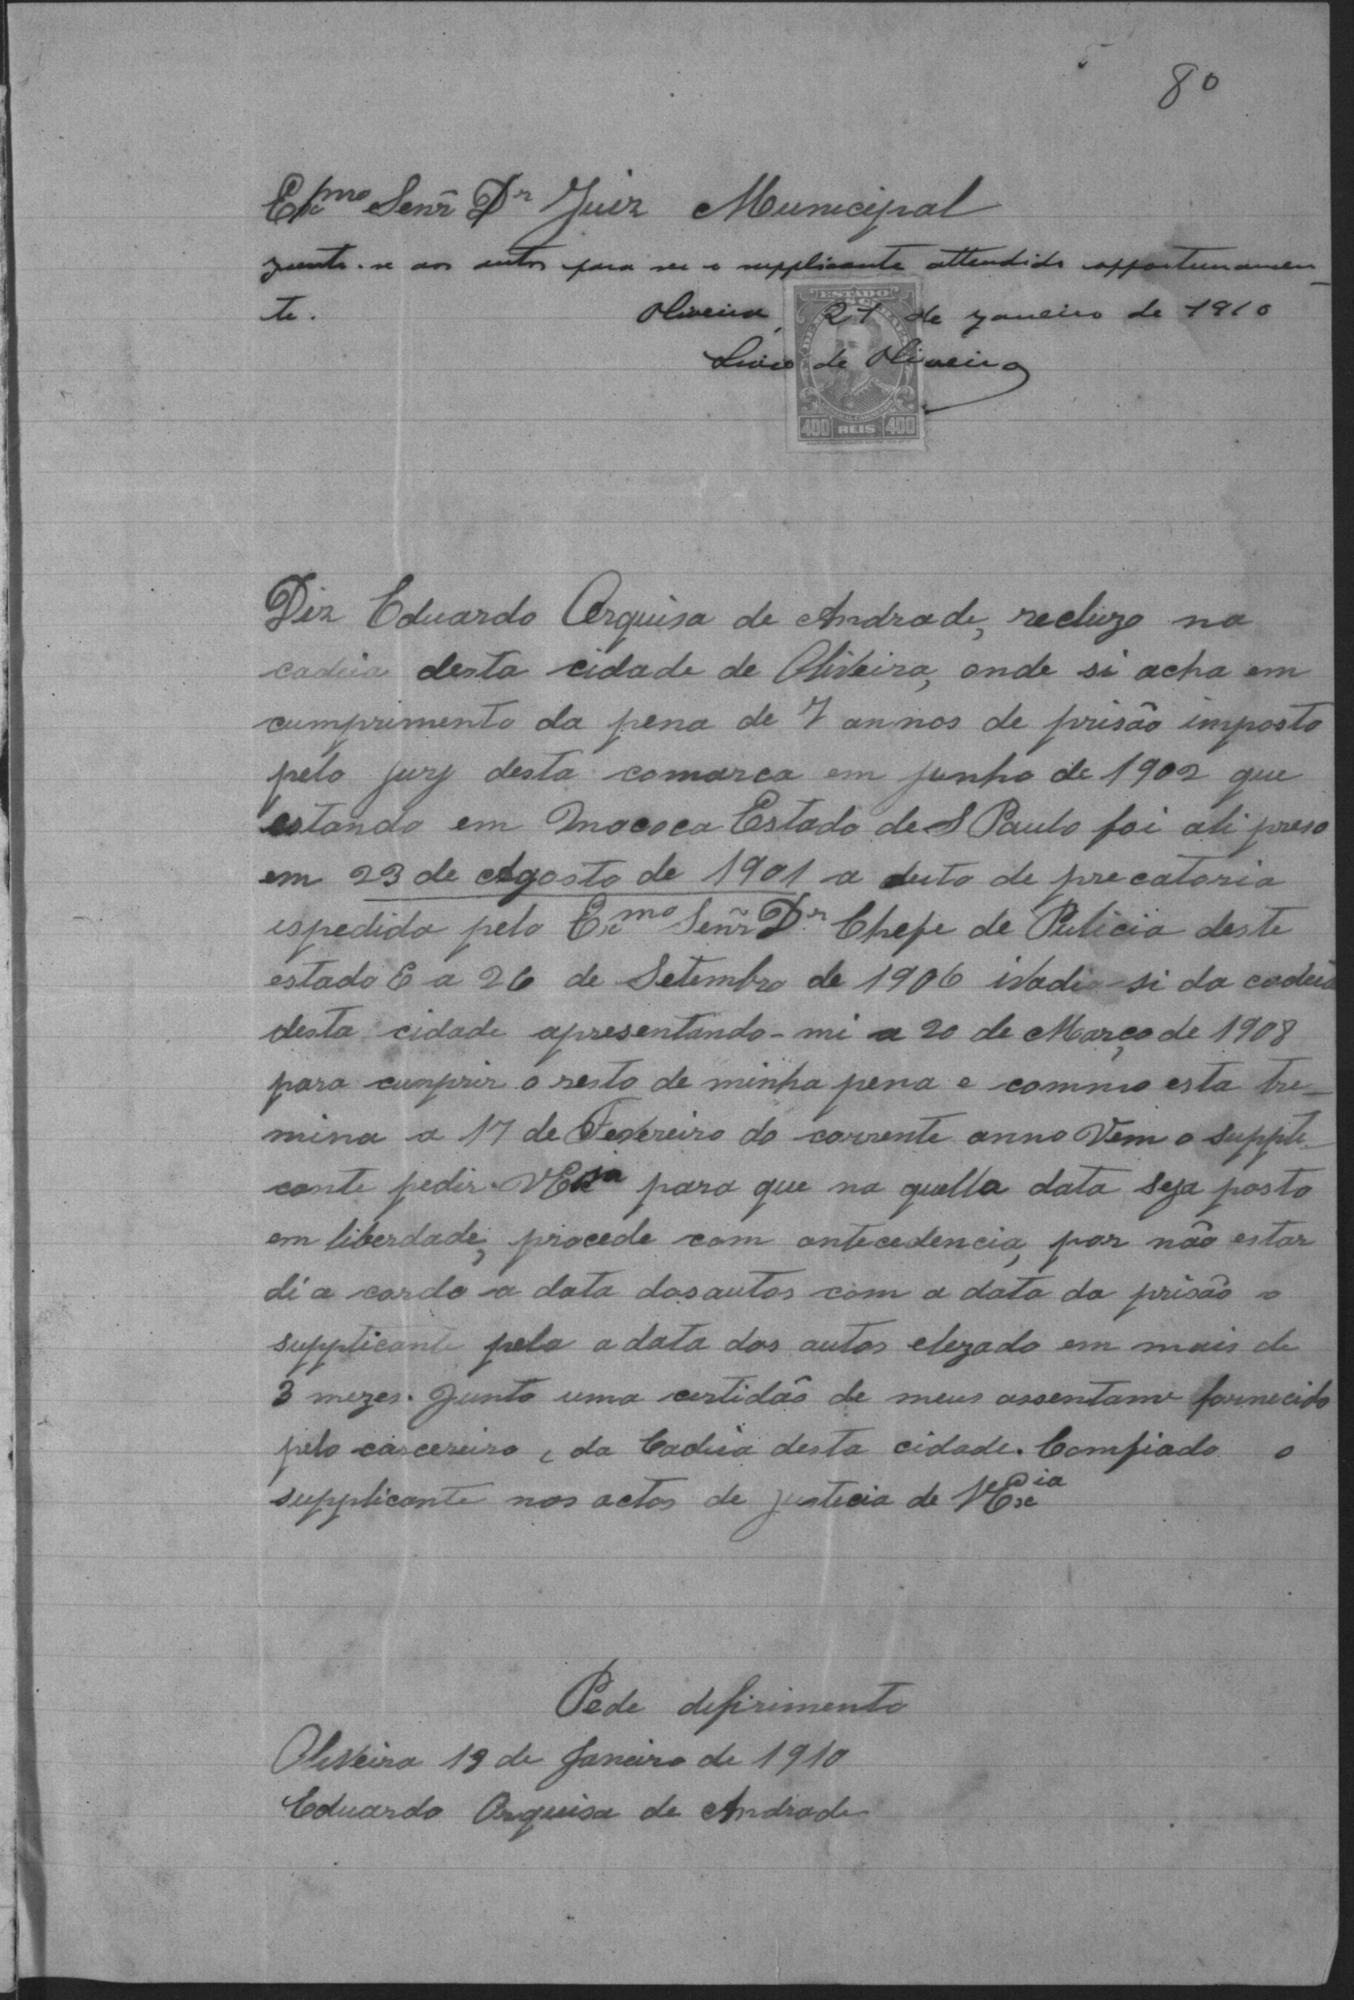 80
Exmo Senr Dr Juiz Municipal
Junte-se aos autos para ser o supplicante attendido opportunamen-
te. Oliveira, 21 de janeiro de 1910
Livio de Oliveira
ESTADO
400 REIS 400
Diz Eduardo Orquisa de Andrade, recluzo na
cadeia desta cidade de Oliveira, onde si acha em
cumprimento da pena de 7 annos de prisão imposto
pelo jury desta comarca em junho de 1902 que
estando em Mococa Estado de S Paulo foi ali preso
em 23 de Agosto de 1901 a de precatoria
espedida pelo Exmo Senr Dr Chefe de Pulicia deste
estado E a 26 de Setembro de 1906 ivadio-si da cadeia
desta cidade apresentando-mi a 20 de Março de 1908
para cunprir o resto de minha pena e commo esta tre-
mina a 17 de Fevereiro do corrente anno Vem o suppli-
cante pedir VExia para que na quella data seja posto
em liberdade, procede com antecedencia, por não estar
di a cordo a data dos autos com a data da prisão o
supplicante pela a data dos autos elezado em mais de
3 mezes. Junto uma certidão de meus assentame fornecido
pelo carcereiro, da Cadeia desta cidade. Comfiado o
supplicante nos actos de justicia de VExia
Pede defirimento
Oliveira 19 de Janeiro de 1910
Eduardo Orquisa de Andrade